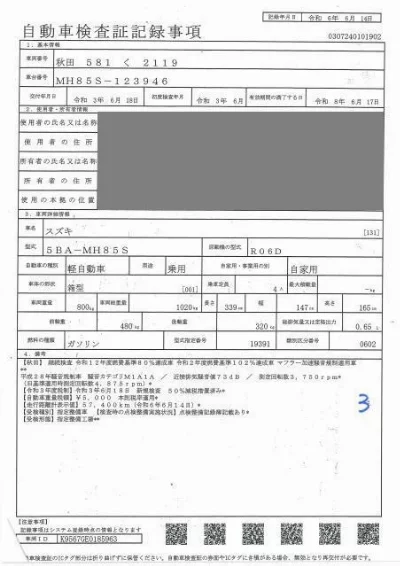 記録年月日 令和 6年 6月 14日
自動車検査証記録事項
0307240101902
1. 基本情報
車両番号 秋田 581 く 2119
車台番号 MH85S-123946
交付年月日 令和 3年 6月 18日 初度検査年月 令和 3年 6月 有効期間の満了する日 令和 8年 6月 17日
2. 使用者・所有者情報
使用者の氏名又は名称
使用者の住所
所有者の氏名又は名称
所有者の住所
使用の本拠の位置
3. 車両詳細情報
車名 スズキ [131]
型式 5BA-MH85S 原動機の型式 R06D
自動車の種別 軽自動車 用途 乗用 自家用・事業用の別 自家用
車体の形状 箱型 [001] 乗車定員 4人 最大積載量 -kg
車両重量 800kg 車両総重量 1020kg 長さ 339cm 幅 147cm 高さ 165cm
前軸重 480kg 後軸重 320kg 総排気量又は定格出力 0.65L
燃料の種類 ガソリン 型式指定番号 19391 類別区分番号 0602
4. 備考
[秋田] 継続検査 令和12年度燃費基準80%達成車 令和2年度燃費基準102%達成車 マフラー加速騒音規制適用車
**
平成28年騒音規制車 騒音カテゴリM1A1A / 近接排気騒音値73dB / 測定回転数3,750rpm*
(旧基準適用時測定回転数4,875rpm)*
[令和3年度税制]令和3年6月18日 新規検査 50%減税措置済み*
[自動車重量税額]¥5,000 本則税率適用*
[走行距離計表示値]57,400km(令和6年6月14日)*
[受検種別]指定整備車 [検査時の点検整備実施状況]点検整備記録簿記載あり*
[受検形態]指定整備工場**
3
【注意事項】
記録事項はシステム登録時点の情報となります
車両ID K95670E0185963
車検査証のICタグ部分は折り曲げずに保管ください。自動車検査証の券面やICタグにき損がある場合、無効となり再交付が必要です。